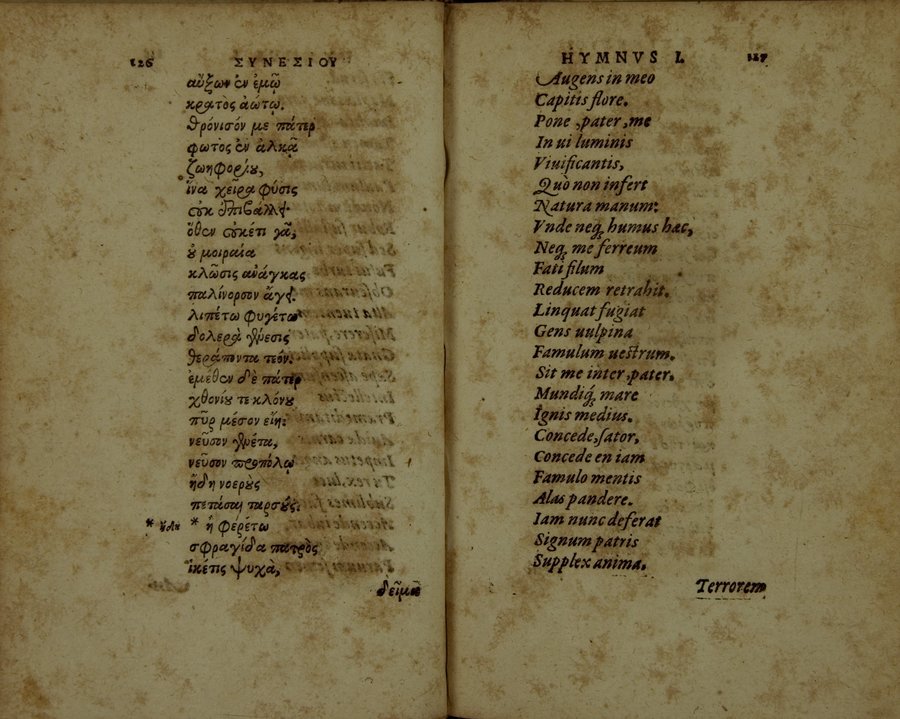 126 ΣΥΝΕΣΙΟΥ
αὔξων ἐν ἐμῷ
κρατος ἀώτῳ.
θρόνισόν με πάτερ
φωτος ἐν ἀλκᾷ
ζωηφορίου,
ἵνα χεῖρα φύσις
οὐκ ἐπιβάλλει
ὅθεν οὐκετι γᾶ,
οὐ μοιραία
κλῶσις ἀνάγκας
παλίνορσον ἄγει.
λιπέτω φυγέτω
δολερὰ γένεσις
θεράποντα τεόν.
ἐμέθεν δὲ πάτερ
χθονίου τε κλόνου
πῦρ μέσον εἴη.
νεῦσον γενέτα,
νεῦσον προπόλῳ
ἤδη νοεροὺς
πετάσαι ταρσούς.
* ἤδη * ἢ φερέτω
σφραγίδα πατρὸς
ἱκέτις ψυχὰ,
δεῖμα
HYMNVS I. 127
Augens in meo
Capitis flore.
Pone, pater, me
In ui luminis
Viuificantis,
Quò non infert
Natura manum:
Vnde neq; humus hæc,
Neq; me ferreum
Fati filum
Reducem retrahit.
Linquat fugiat
Gens uulpina
Famulum uestrum.
Sit me inter, pater,
Mundiq́; mare
Ignis medius.
Concede, sator,
Concede en iam
Famulo mentis
Alas pandere.
Iam nunc deferat
Signum patris
Supplex anima.
Terrorem